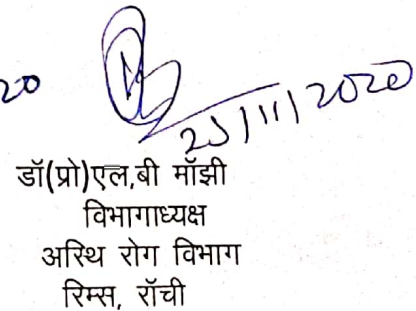 20
/11/2020
डॉ(प्रो)एल,बी मॉझी
विभागाध्यक्ष
अस्थि रोग विभाग
रिम्स, रॉची